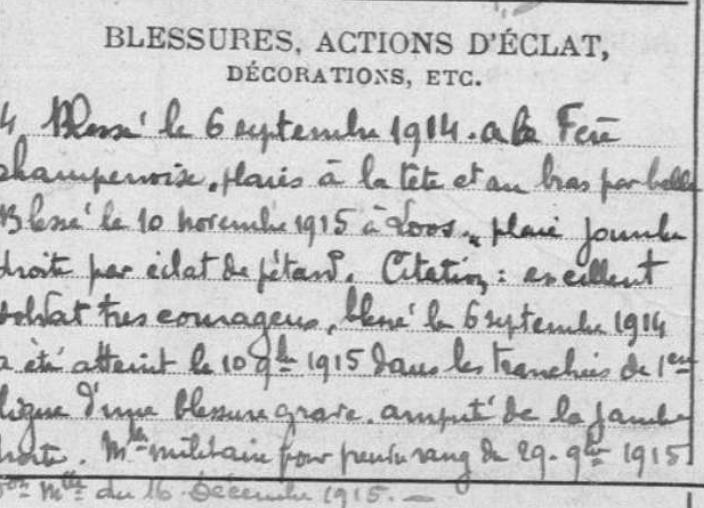 BLESSURES, ACTIONS D'ÉCLAT,
DÉCORATIONS, ETC.
Blessé le 6 septembre 1914. a la Fère
champenoise, plaies à la tête et au bras par balle
Blessé le 10 novembre 1915 à Loos. plaie jambe
droite par éclat de pétard. Citation : excellent
soldat tres courageux, blessé le 6 septembre 1914
a été atteint le 10 9bre 1915 dans les tranchées de 1ère
ligne d'une blessure grave. amputé de la jambe
droite. Mlle militaire pour prendre rang du 29. 9bre 1915
Mlle du 16 Décembre 1915. —